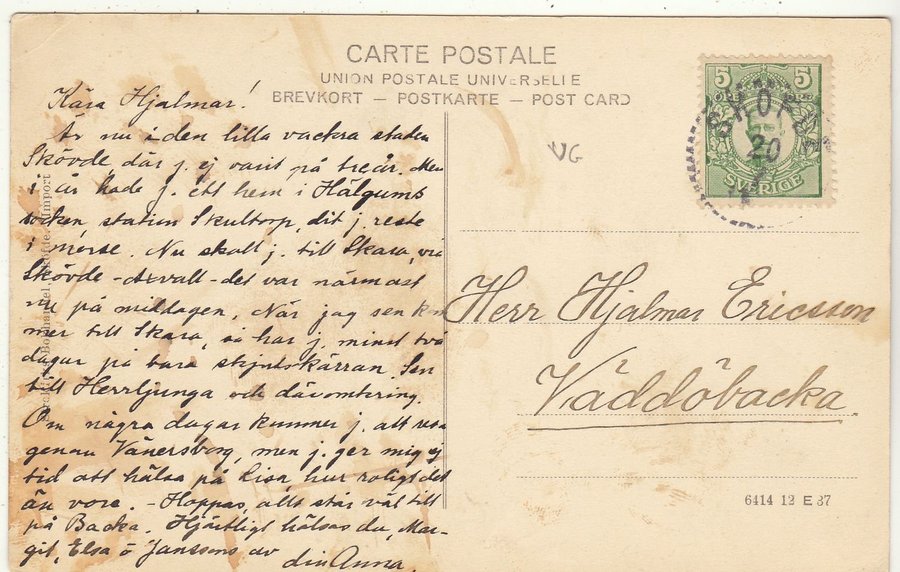 CARTE POSTALE
UNION POSTALE UNIVERSELLE
BREVKORT — POSTKARTE — POST CARD
Kära Hjalmar!
Är nu i den lilla vackra staden
Skövde där j. ej varit på tre år. Men
i år hade j. ett hem i Hälgums
socken station Skultorp, dit j. reste
i morse. Nu skall j. till Skara, via
Skövde - Axvall - det var närmast
nu på middagen. När jag sen kom
mer till Skara, så har j. minst två
dagar på bara skjutskärran. Sen
till Herrljunga och däromkring.
Om några dagar kommer j. att resa
genom Vänersborg, men j. ger mig ej
tid att hälsa på Lisa, hur roligt det
än vore. - Hoppas, allt står väl till
på Backa. Hjärtligt hälsas du, Mar-
git, Elsa o Janssons av
din Anna.
VG
5 5
SVERIGE
20
Herr Hjalmar Ericsson
Väddöbacka.
6414 12 E 37
Import